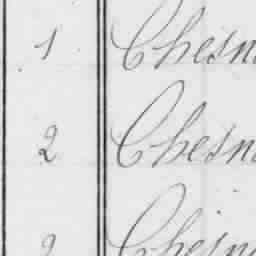 1 Chesn
2 Chesn
Chesn